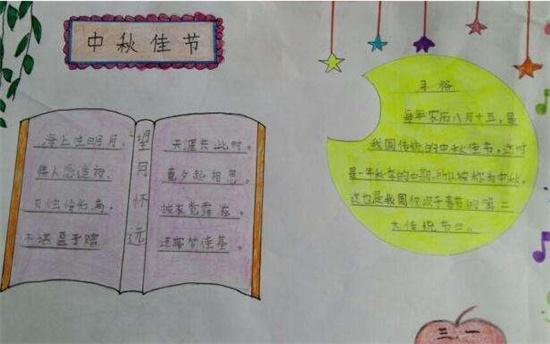 中秋佳节
望月怀远
海上生明月，
天涯共此时。
情人怨遥夜，
竟夕起相思。
灭烛怜光满，
披衣觉露滋。
不堪盈手赠，
还寝梦佳期。
习俗
每年农历八月十五，是
我国传统的中秋佳节，这时
是一年秋季的中期，所以被称为中秋。
这也是我国仅次于春节的第二
大传统节日。
三．一